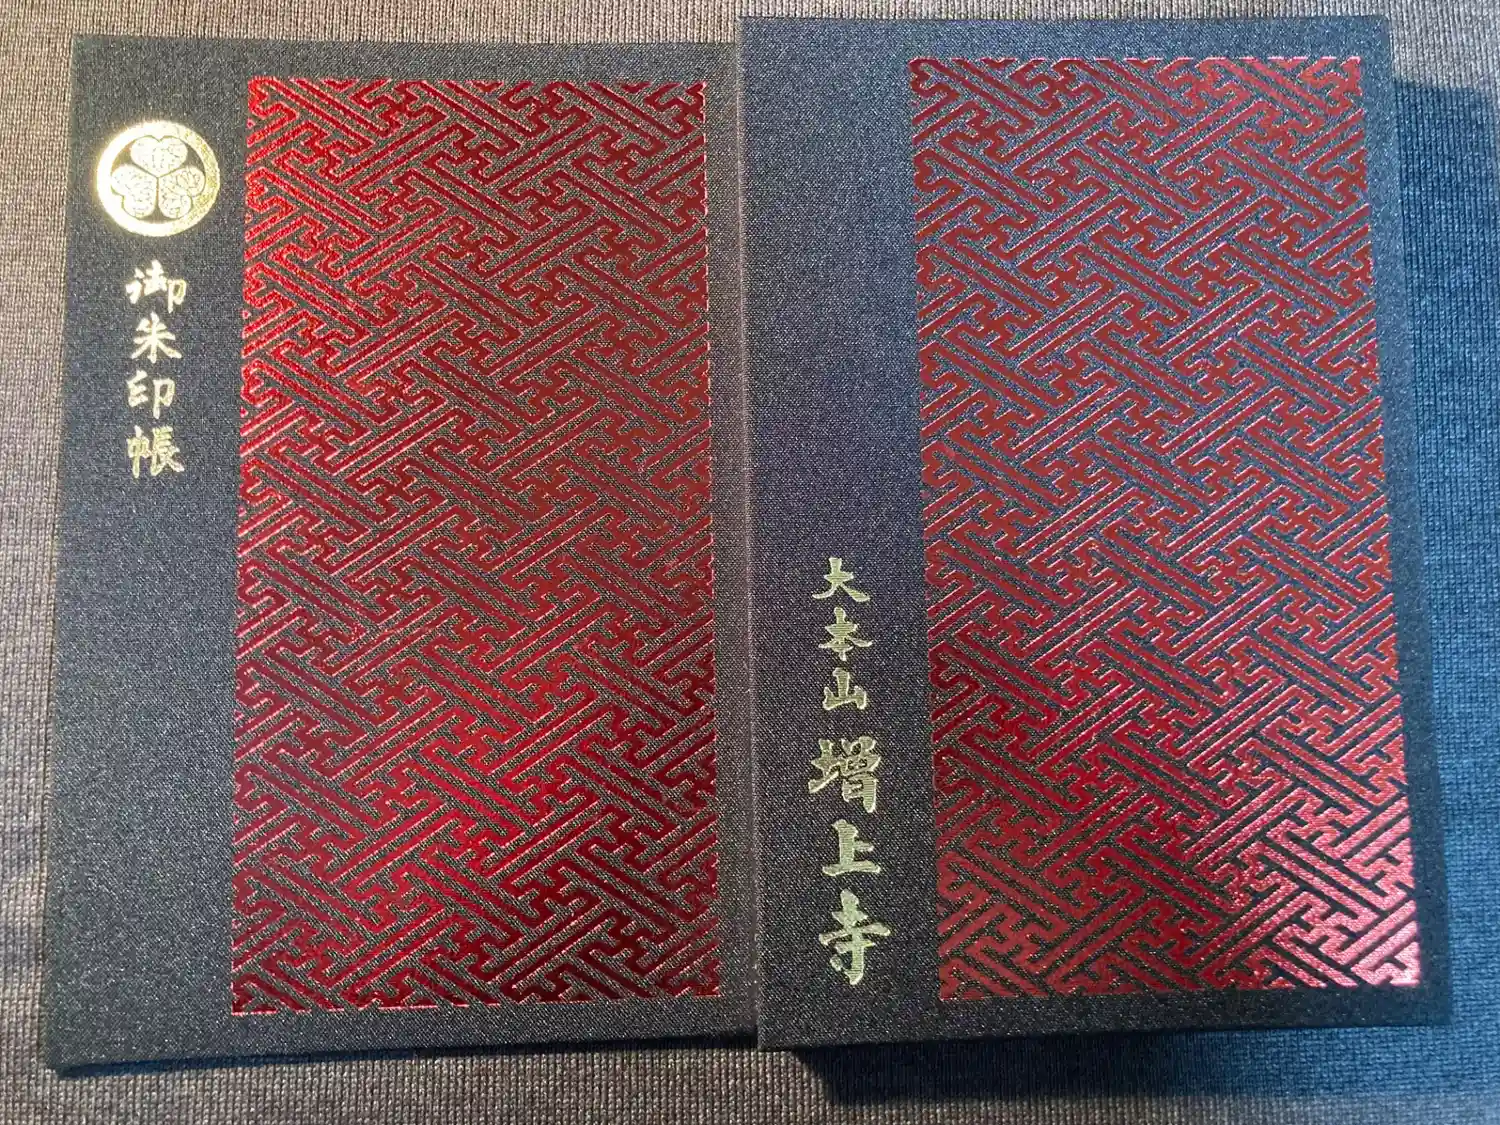 御朱印帳
大本山 増上寺